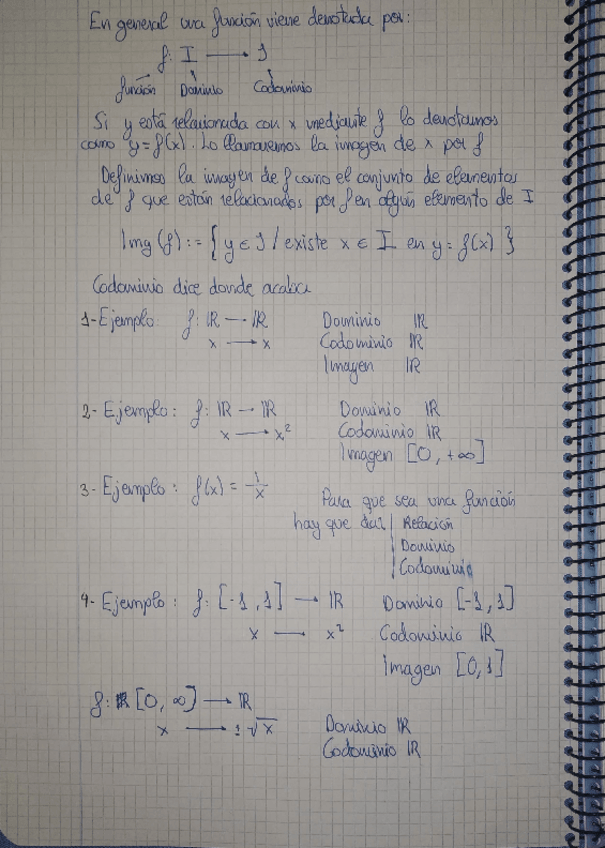 En general una función viene denotada por:
f: I → J
función Dominio Codominio
Si y está relacionada con x mediante f lo denotamos
como y = f(x). Lo llamaremos la imagen de x por f
Definimos la imagen de f como el conjunto de elementos
de f que están relacionados por f en algún elemento de I
Img (f) := { y ∈ J / existe x ∈ I en y = f(x) }
Codominio dice donde acaba
1- Ejemplo f: ℝ → ℝ Dominio ℝ
x → x Codominio ℝ
Imagen ℝ
2- Ejemplo: f: ℝ → ℝ Dominio ℝ
x → x² Codominio ℝ
Imagen [0, +∞]
3- Ejemplo: f(x) = 1/x
Para que sea una función
hay que dar | Relación
Dominio
Codominio
4- Ejemplo: f: [-1, 1] → ℝ Dominio [-1, 1]
x → x² Codominio ℝ
Imagen [0, 1]
f: [0, ∞) → ℝ
x → √x Dominio ℝ
Codominio ℝ